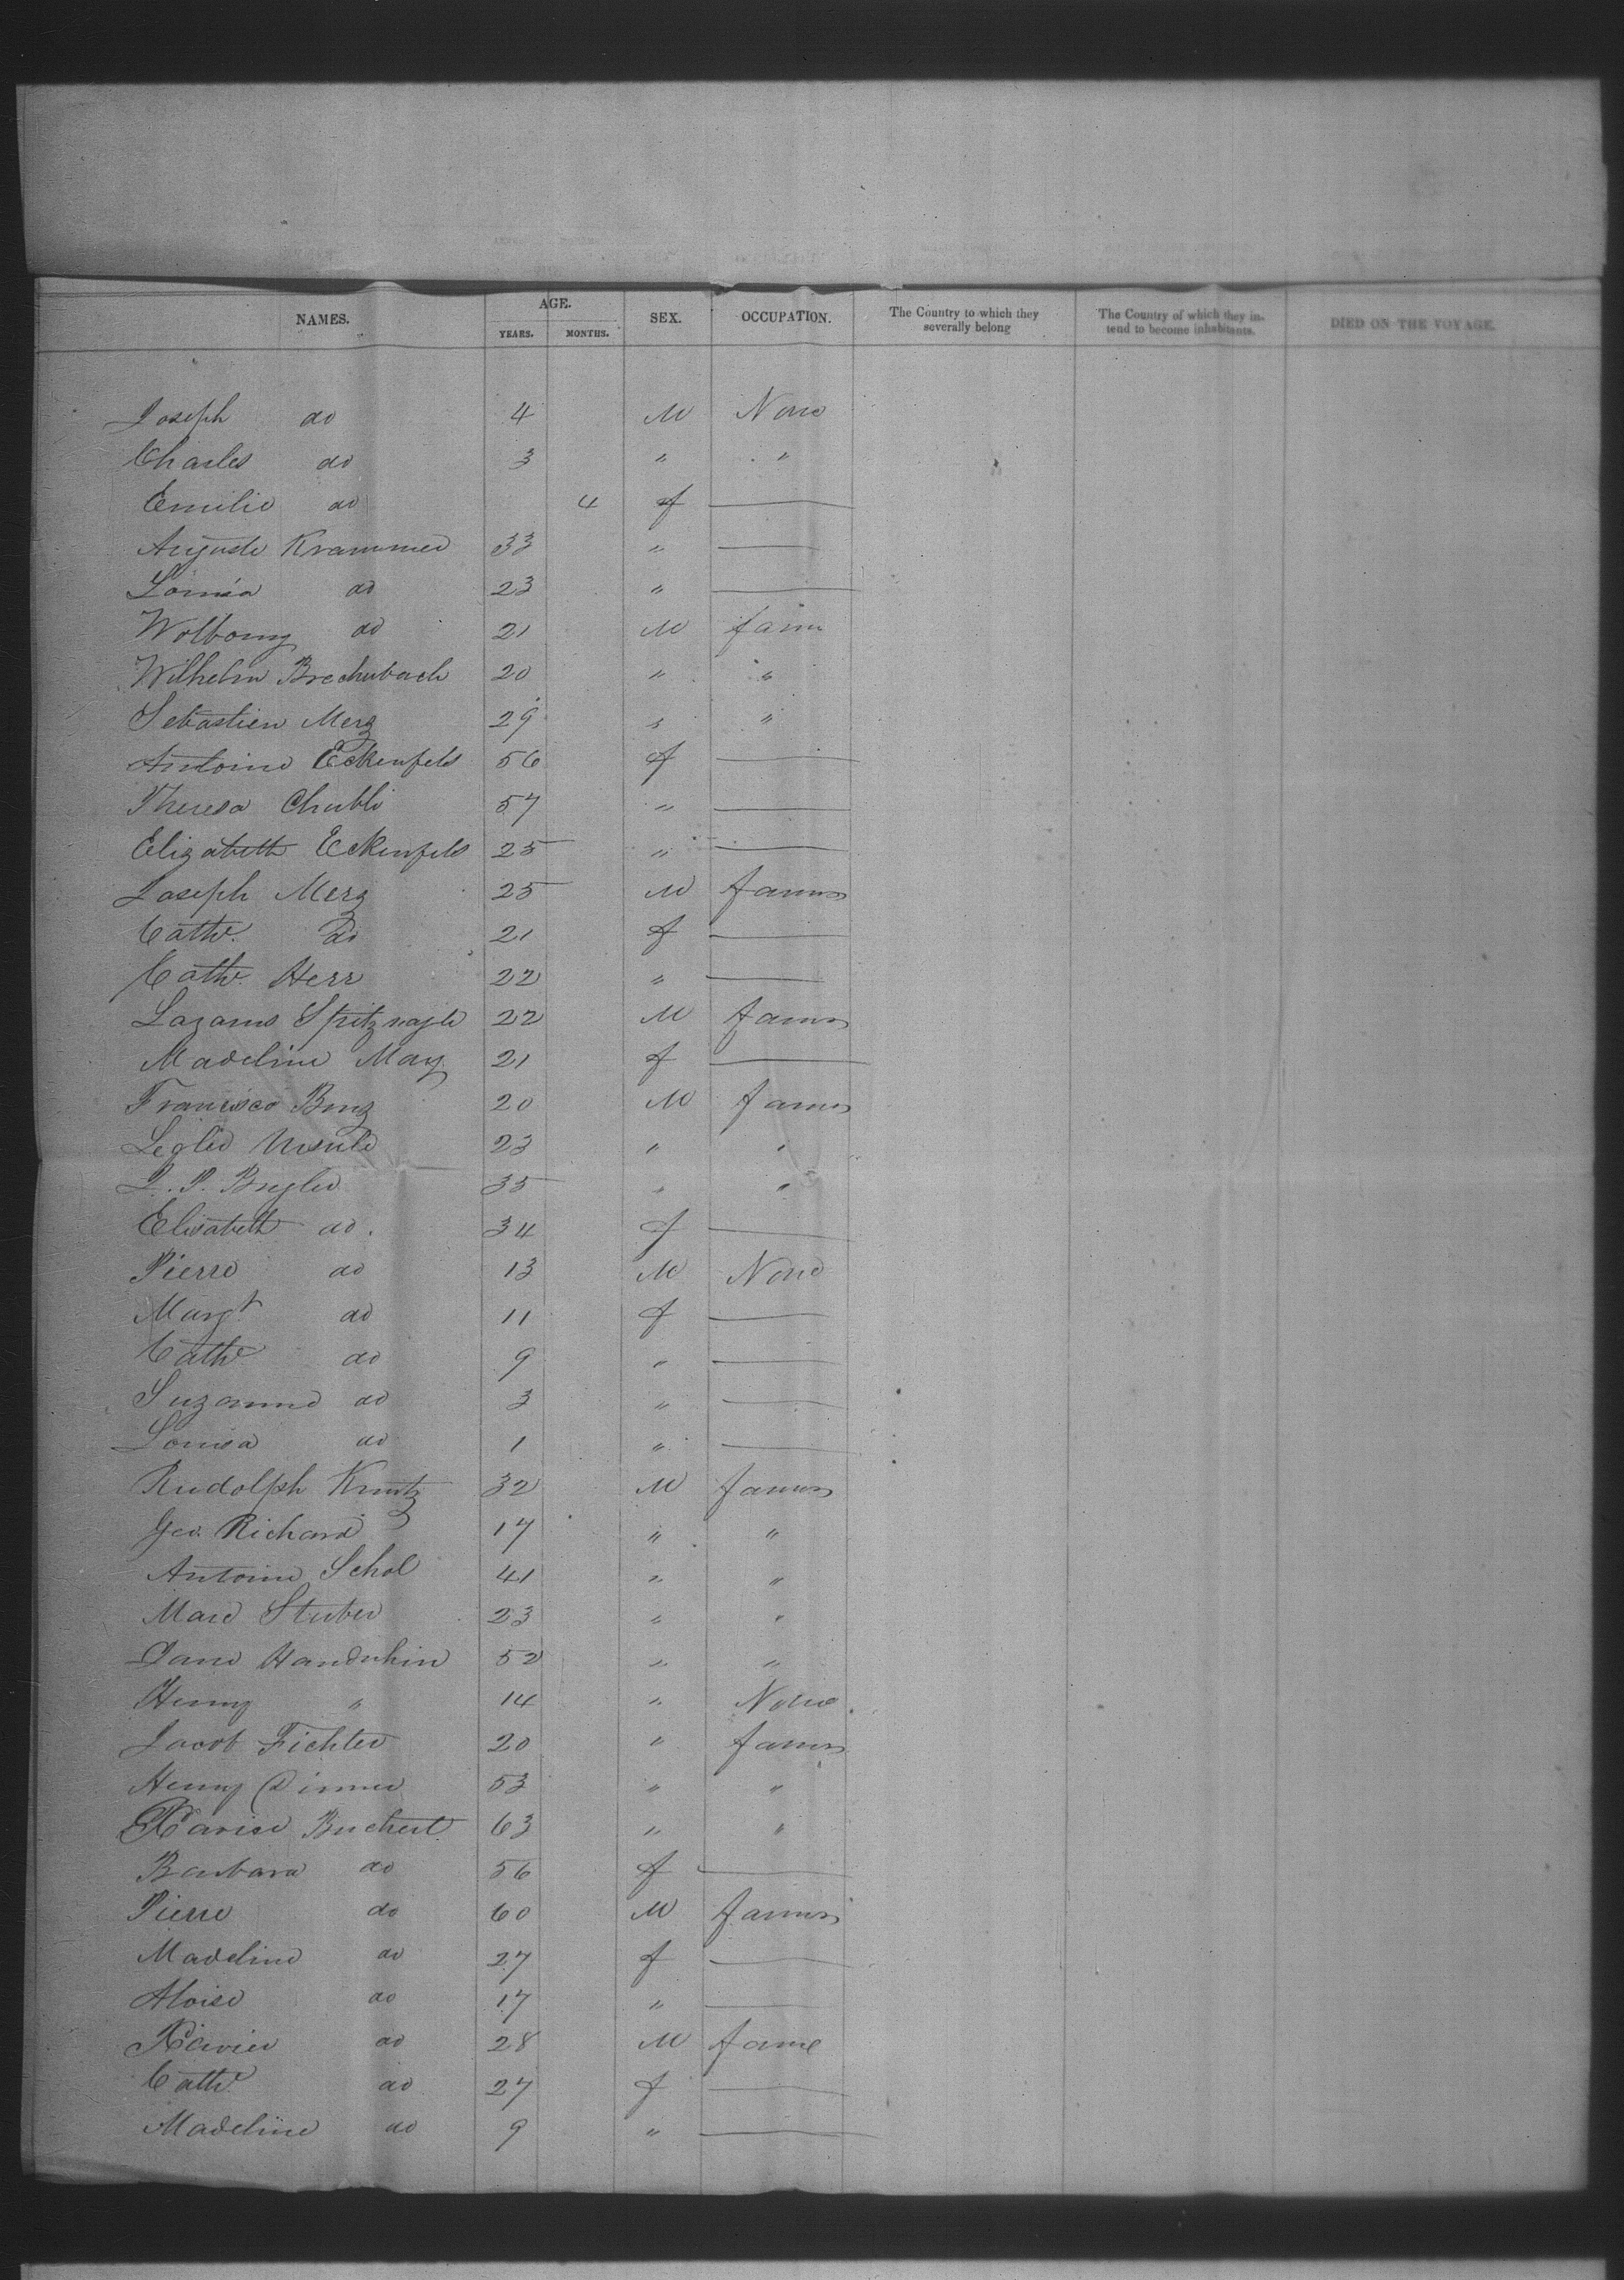 NAMES. AGE. YEARS. MONTHS. SEX. OCCUPATION. The Country to which they severally belong The Country of which they intend to become inhabitants. DIED ON THE VOYAGE.
Joseph do 4 M None
Charles do 3 " "
Emilie do 4 f —
Auguste Krammer 33 " —
Louisa do 23 " —
do 21 M farm
Wilhelm 20 " "
Sebastien Merz 29 " "
Antoine Eckenfels 56 f —
Theresa Chubli 57 " —
Elizabeth Eckenfels 25 " —
Joseph Merz 25 M farmer
Cathe. do 21 f —
Cathe. Herr 22 " —
Lazarus Spitznagle 22 M farmer
Madeline May 21 f —
Francisco Benz 20 M farmer
Legler Ursule 23 " "
J. P. Bugler 35 " "
Elisabeth do. 34 f —
Pierre do 13 M None
Margt. do 11 f —
Cathe do 9 " —
Suzanne do 3 " —
Louisa do 1 " —
Rudolph Kuntz 32 M farmer
Geo. Richard 17 " "
Antoine Schol 41 " "
Marc Stuber 23 " "
52 " "
Henry " 14 " None
Jacob Fichter 20 " farmer
Henry Dinner 53 " "
Buchert 63 " "
Barbara do 56 f —
Pierre do 60 M farmer
Madeline do 27 f —
Aloise do 17 " —
Xavier do 28 M farme
Cathe do 27 f —
Madeline do 9 " —